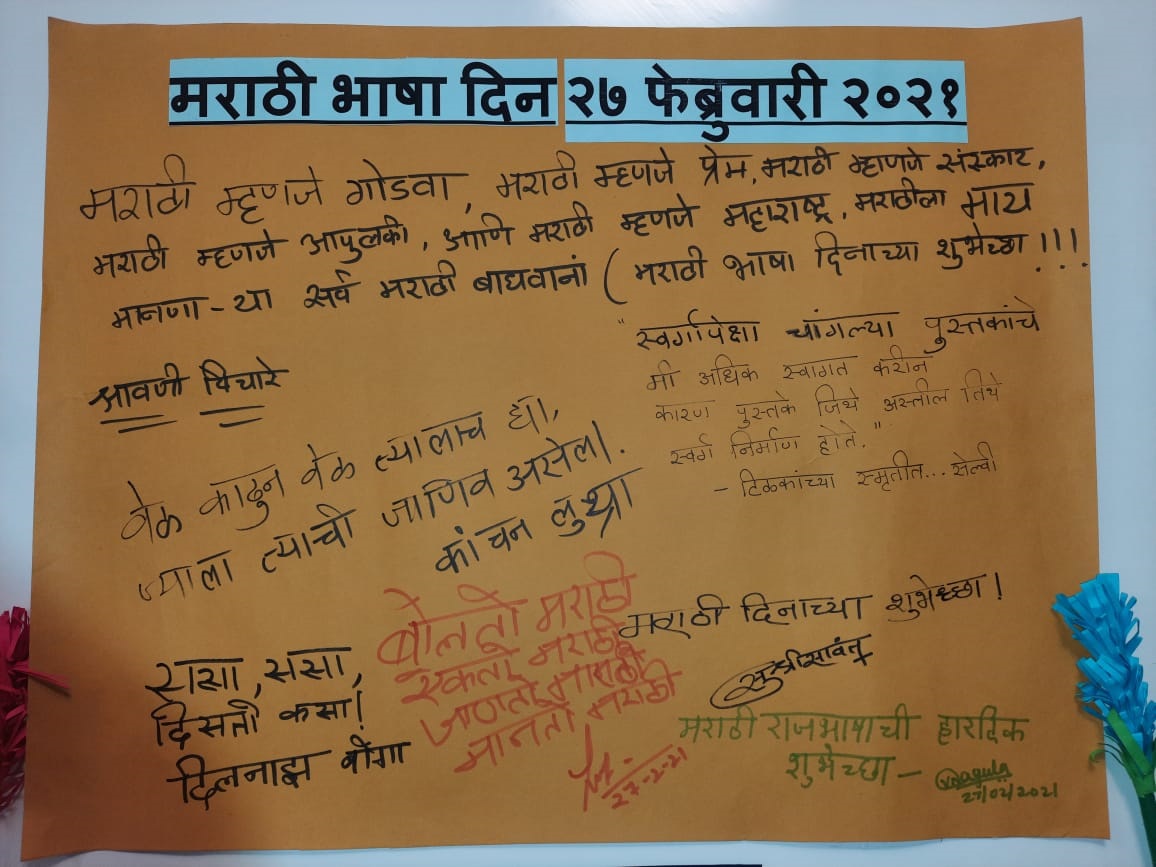 मराठी भाषा दिन २७ फेब्रुवारी २०२१
मराठी म्हणजे गोडवा, मराठी म्हणजे प्रेम, मराठी म्हाणजे संस्कार,
मराठी म्हणजे आपुलकी, आणि मराठी म्हणजे महाराष्ट्र, मराठीला माय
मानणा-या सर्व मराठी बाधवानां ( मराठी भाषा दिनाच्या शुभेच्छा !!!
श्रावणी विचारे
"स्वर्गापेक्षा चांगल्या पुस्तकांचे
मी अधिक स्वागत करीन
कारण पुस्तके जिथे असतील तिथे
स्वर्ग निर्माण होते."
- टिळकांच्या स्मृतीत... सेल्वी
वेळ काढुन वेळ त्यालाच द्या,
ज्याला त्याची जाणिव असेल.
कांचन लुथ्रा
ससा, ससा,
दिसतो कसा!
दिलनाझ वोगा
बोलतो मराठी
एकतो मराठी
जाणतो मराठी
मानतो मराठी
27-2-21
मराठी दिनाच्या शुभेच्छा!
मराठी राजभाषाची हारदिक
शुभेच्छा -
27/02/2021